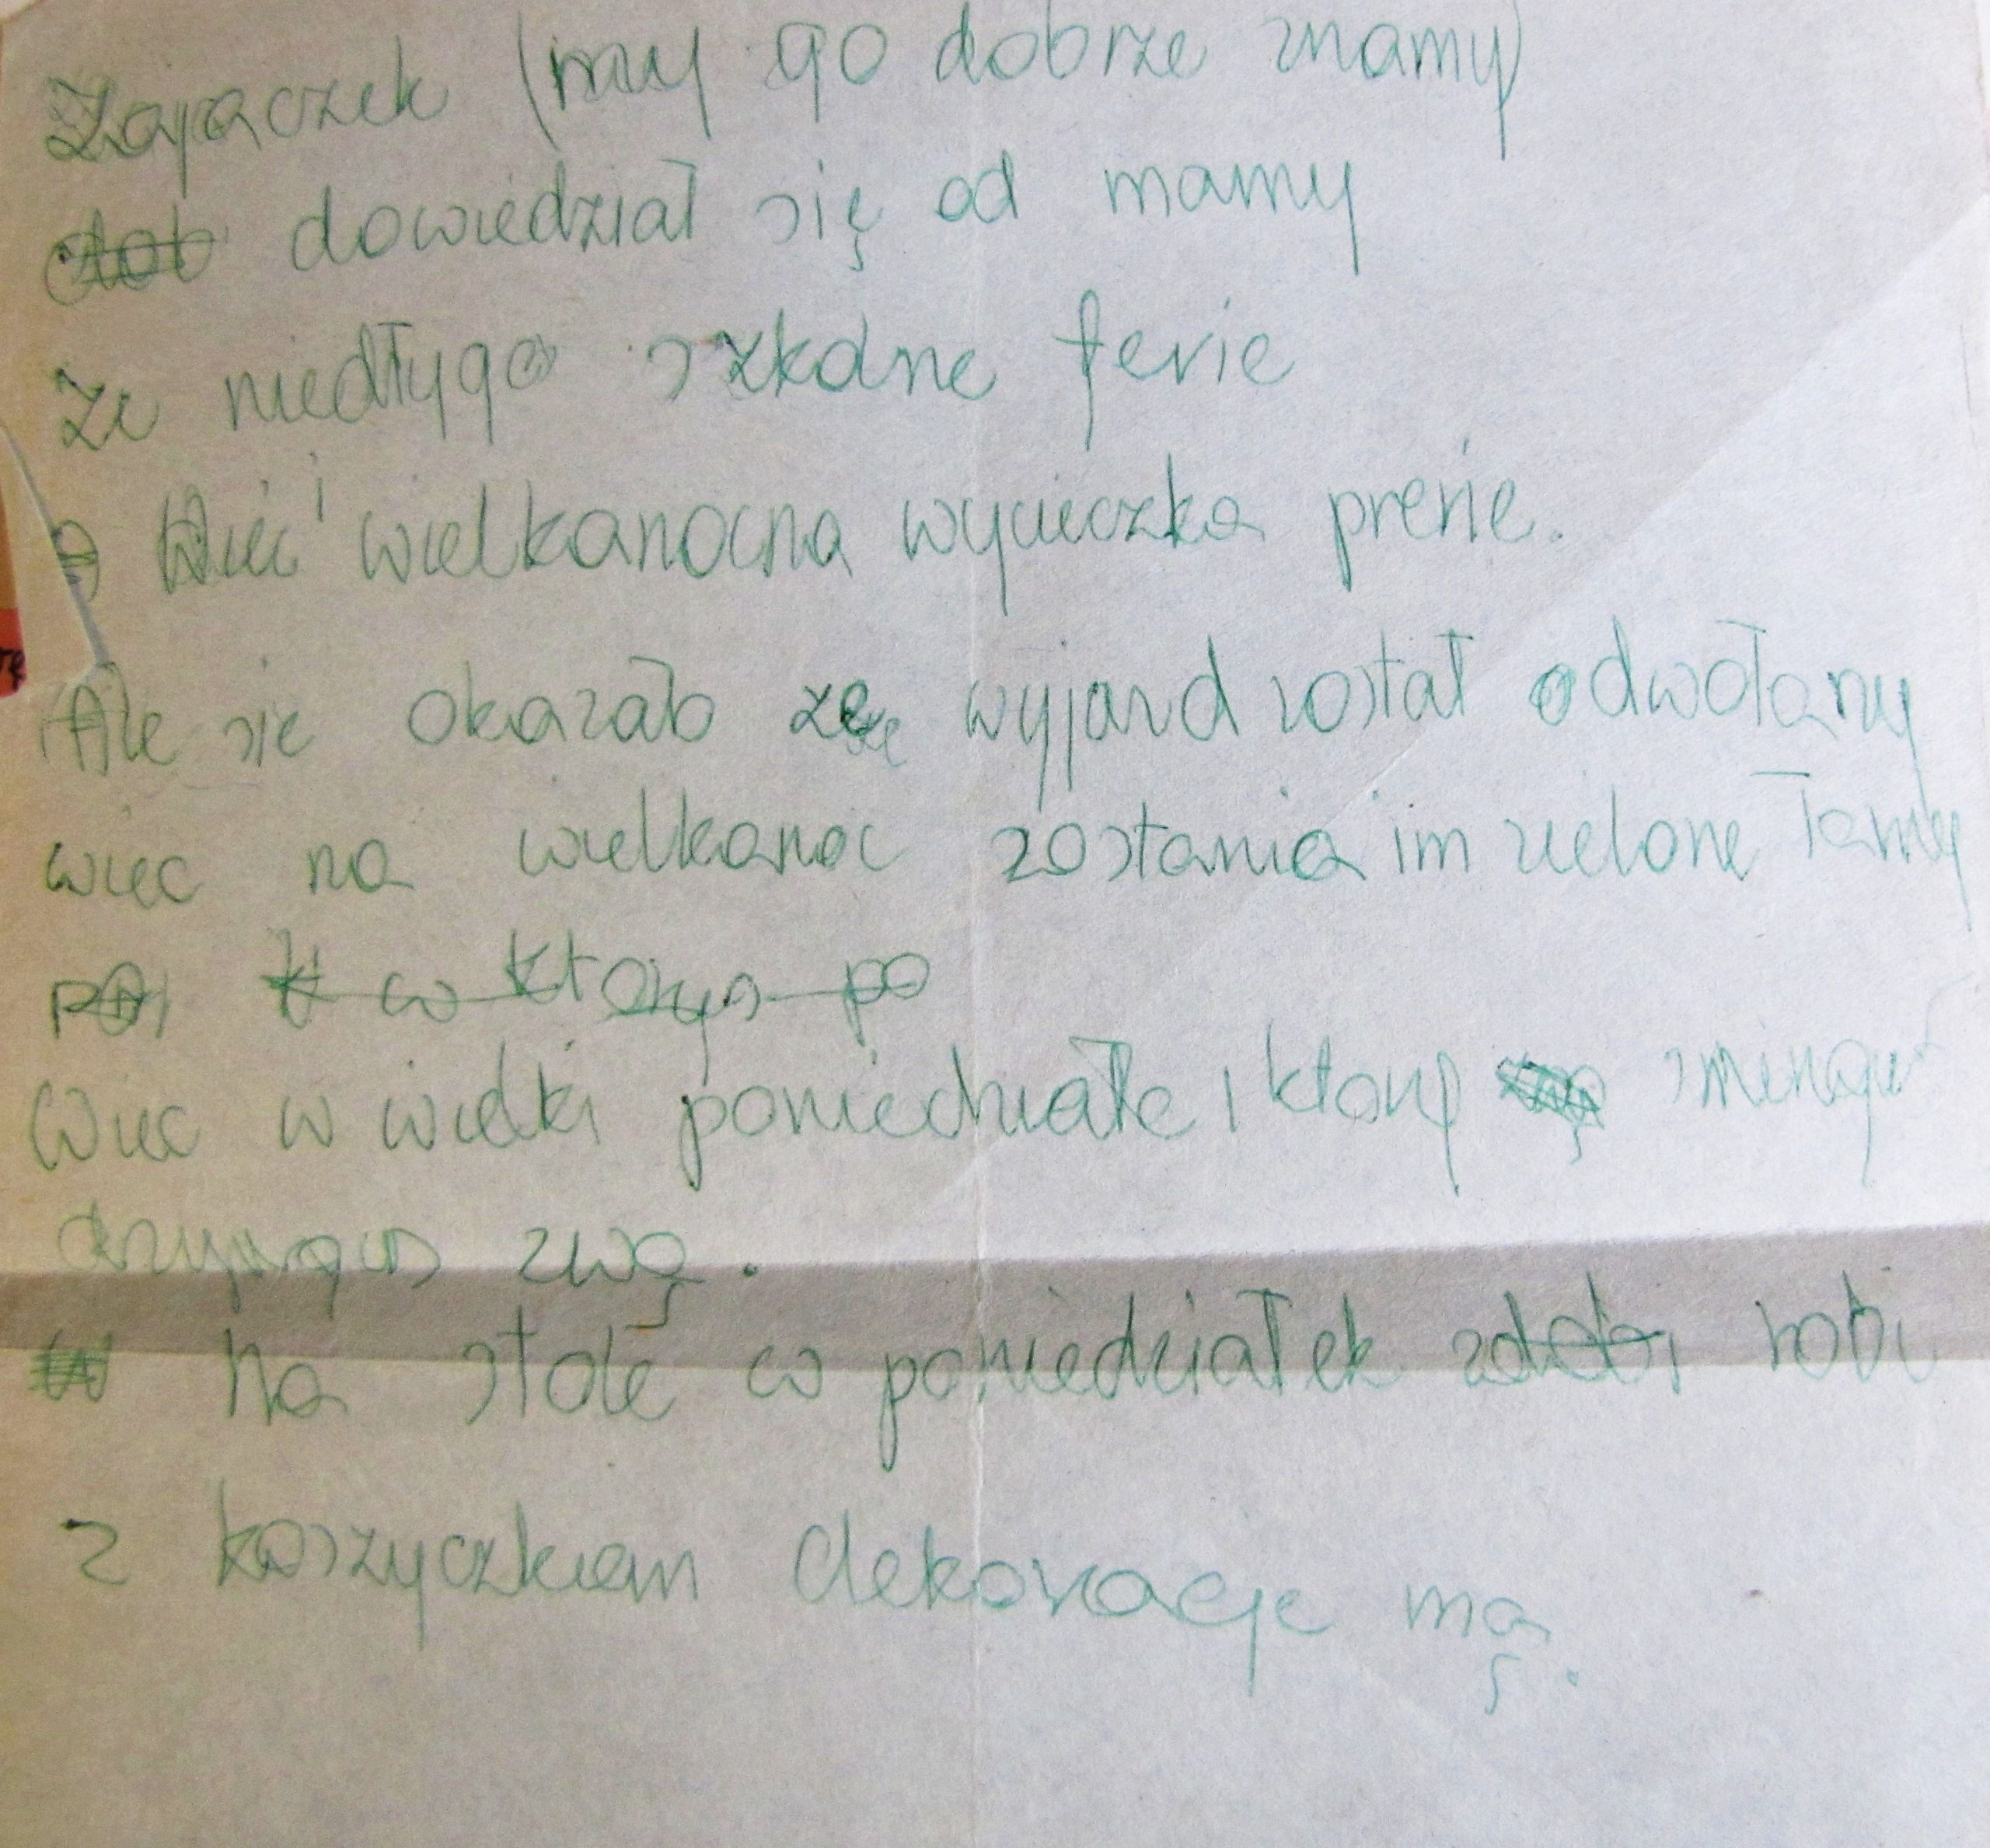 Zajączek (my go dobrze znamy)
dob dowiedział się od mamy
że niedłygo szkolne ferie
Więc i wielkanocna wycieczka prerie.
Ale sie okazało że wyjazd został odwołany
więc na wielkanoc zostania im zielone łamy
w którys po
Więc w wielki poniedziałe i który smingu
dzyngus zwą.
Na stole co poniedziałek zdobi robi
z koszyczkiem dekoracje mą.